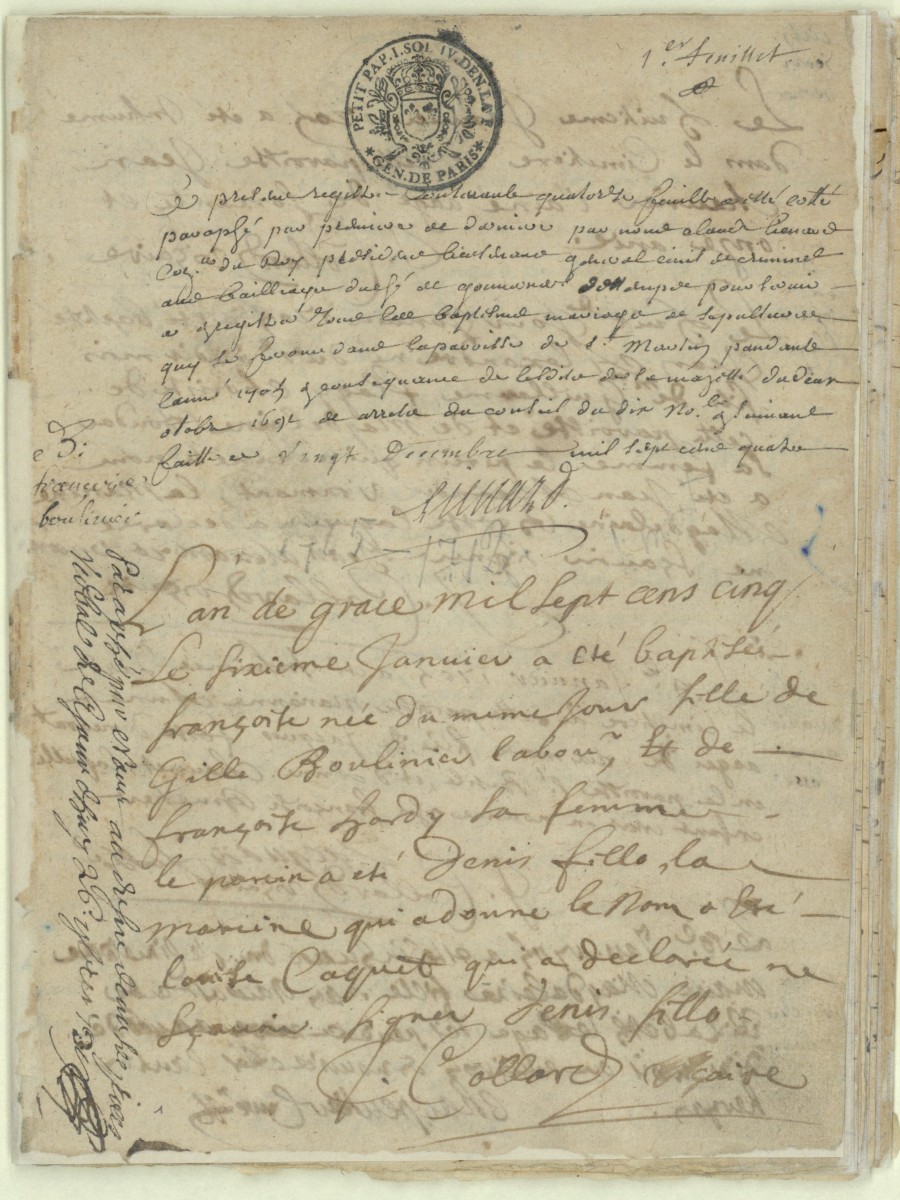 PETIT PAP. I. SOL IV. DEN. LA F.
GEN. DE PARIS
1.er feuillet
Ce present registre contenante quatorze feuilles a esté cotté
paraphé par premier et dernier par nous claude lienard
Con.er du Roy president lieutenant general civil et criminel
au bailliage duché et gouvernem.t destampes pour servir
a registré tous les baptesme mariage et sepultures
quy se feront dans la parroisse de s.t Martin pendante
lanné 1705 en consequance de lesdits de sa majesté du deux
octobr 1691 et arrests du conseil du dix no.bre ensuivant
faitte ce vingt Decembre mil sept cent quatre
Lienard.
1705
B.
francoise
boulinier
L'an de grace mil sept cens cinq
Le sixieme Janvier a eté baptisée
françoise née du meme Jour fille de
Gille Boulinier labour, et de
françoise hardy sa femme
le parein a eté Denis fillo, la
mareine qui a donné le Nom a eté
louise Caquet qui a declarée ne
sçavoir signer Denis fillo
J. Collard vicaire
Paraphé par Nous au desir de